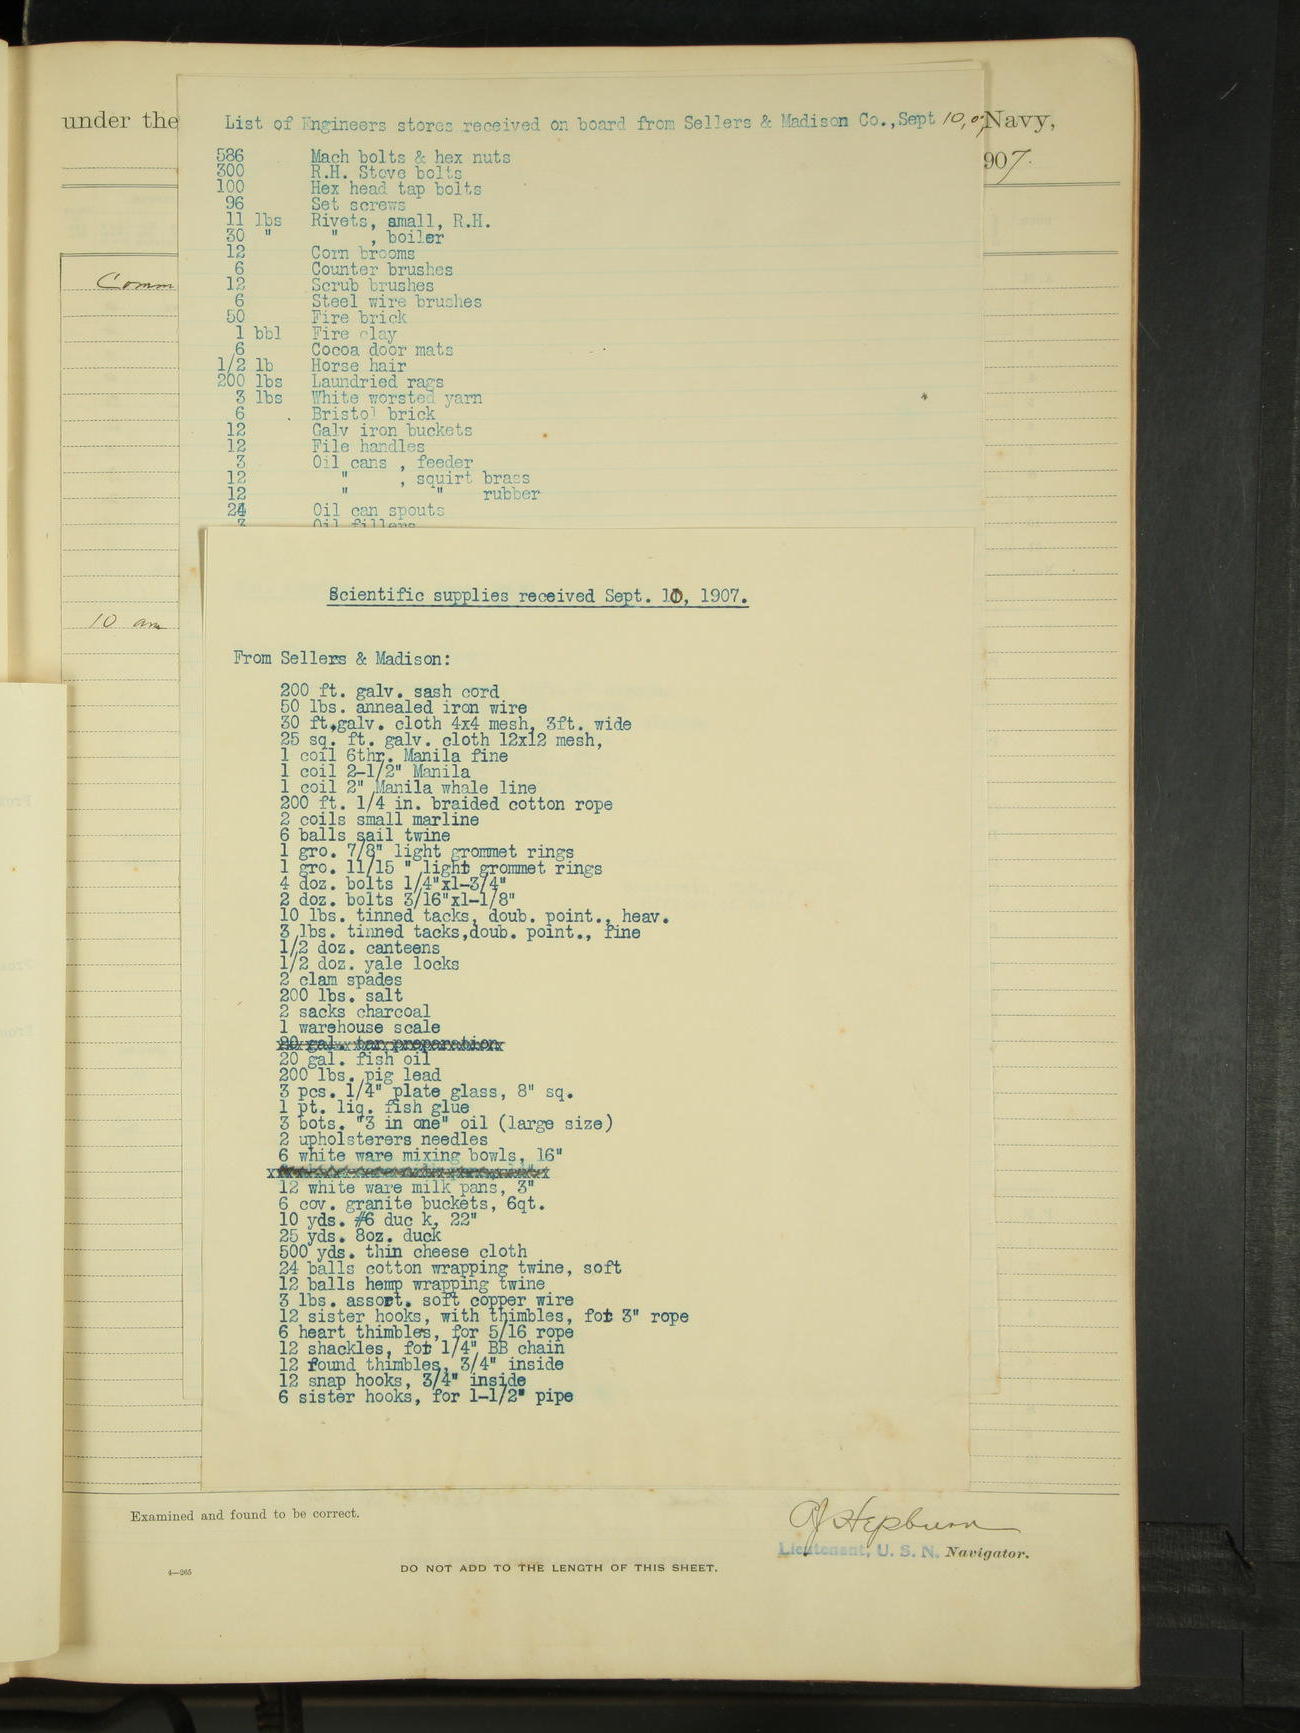 under the
List of Engineers stores received on board from Sellers & Madison Co.,Sept 10, 07
Navy,
907.
586 Mach bolts & hex nuts
300 R.H. Stove bolts
100 Hex head tap bolts
96 Set screws
11 lbs Rivets, amall, R.H.
30 " " , boiler
12 Corn brooms
6 Counter brushes
Comm
12 Scrub brushes
6 Steel wire brushes
50 Fire brick
1 bbl Fire clay
6 Cocoa door mats
1/2 lb Horse hair
200 lbs Laundried rags
3 lbs White worsted yarn
6 Bristol brick
12 Galv iron buckets
12 File handles
3 Oil cans , feeder
12 " , squirt brass
12 " " rubber
24 Oil can spouts
3 Oil fillers
Scientific supplies received Sept. 10, 1907.
10 am
From Sellers & Madison:
200 ft. galv. sash cord
50 lbs. annealed iron wire
30 ft.galv. cloth 4x4 mesh, 3ft. wide
25 sq. ft. galv. cloth 12x12 mesh,
1 coil 6thr. Manila fine
1 coil 2-1/2" Manila
1 coil 2" Manila whale line
200 ft. 1/4 in. braided cotton rope
2 coils small marline
6 balls sail twine
1 gro. 7/8" light grommet rings
1 gro. 11/15 " light grommet rings
4 doz. bolts 1/4"x1-3/4"
2 doz. bolts 3/16"x1-1/8"
10 lbs. tinned tacks, doub. point., heav.
3 lbs. tinned tacks,doub. point., fine
1/2 doz. canteens
1/2 doz. yale locks
2 clam spades
200 lbs. salt
2 sacks charcoal
1 warehouse scale
20 gal. tar preparation
20 gal. fish oil
200 lbs. pig lead
3 pcs. 1/4" plate glass, 8" sq.
1 pt. liq. fish glue
3 bots. "3 in one" oil (large size)
2 upholsterers needles
6 white ware mixing bowls, 16"
12 white ware milk pans, 3"
6 cov. granite buckets, 6qt.
10 yds. #6 duc k, 22"
25 yds. 8oz. duck
500 yds. thin cheese cloth
24 balls cotton wrapping twine, soft
12 balls hemp wrapping twine
3 lbs. assort. soft copper wire
12 sister hooks, with thimbles, fot 3" rope
6 heart thimbles, for 5/16 rope
12 shackles, fot 1/4" BB chain
12 found thimbles, 3/4" inside
12 snap hooks, 3/4" inside
6 sister hooks, for 1-1/2" pipe
Examined and found to be correct.
AJ Hepburn
Lieutenant, U. S. N. Navigator.
4—265
DO NOT ADD TO THE LENGTH OF THIS SHEET.